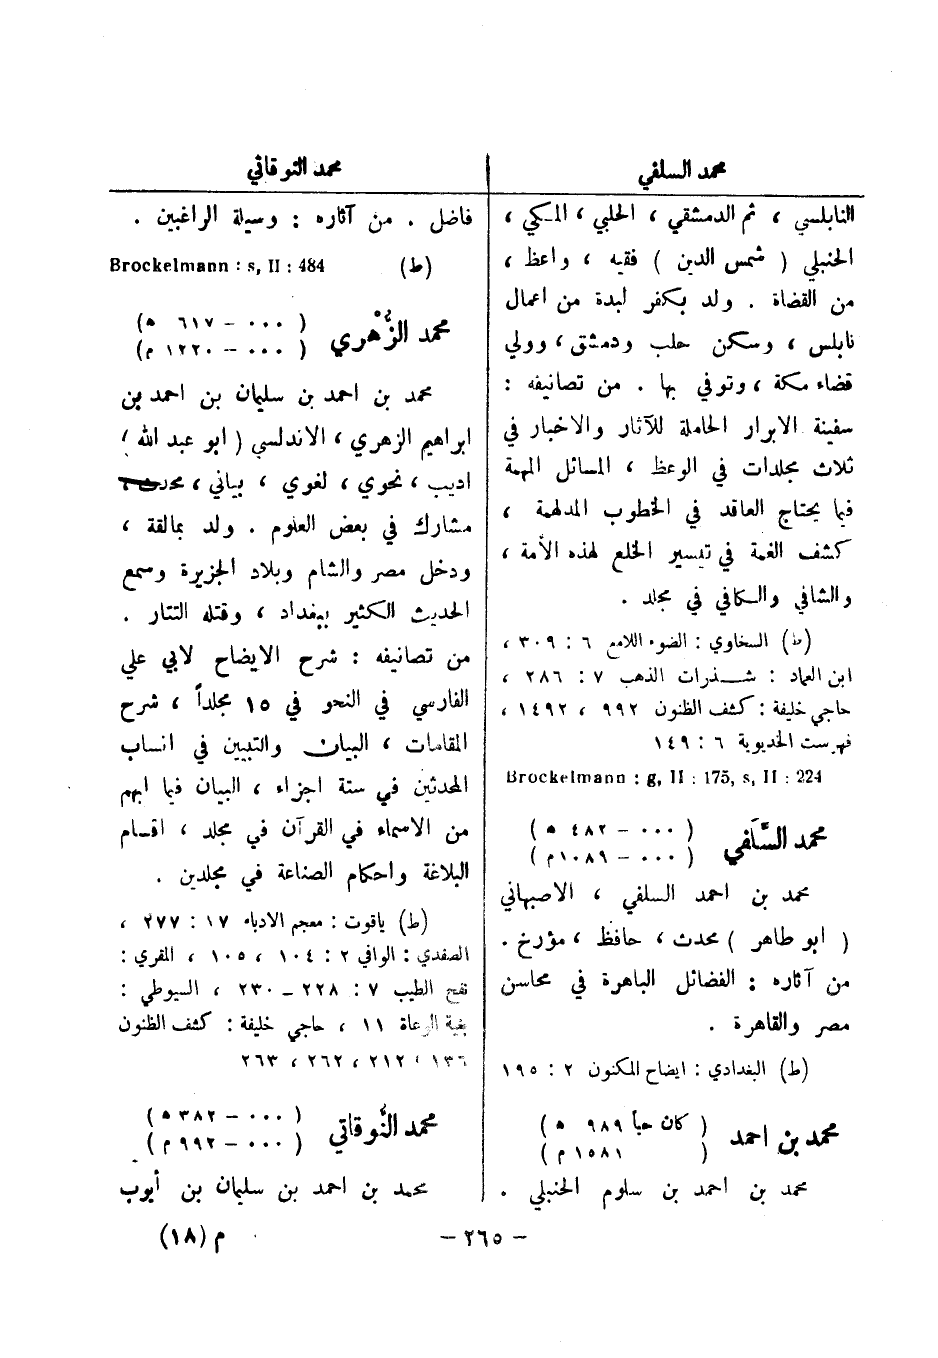 محمد السلفي
النابلسي ، ثم الدمشقي ، الحلبي ، المكي ،
الحنبلي ( شمس الدين ) فقيه ، واعظ ،
من القضاة . ولد بكفر لبدة من اعمال
نابلس ، وسكن حلب ودمشق ، وولي
قضاء مكة ، وتوفي بها . من تصانيفه :
سفينة الابرار الحاملة للآثار والاخبار في
ثلاث مجلدات في الوعظ ، المسائل المهمة
فيما يحتاج العاقد في الخطوب المدلهمة ،
كشف الغمة في تيسير الخلع لهذه الأمة ،
والشافي والكافي في مجلد .
(ط) السخاوي : الضوء اللامع ٦ : ٣٠٩ ،
ابن العماد : شذرات الذهب ٧ : ٢٨٦ ،
حاجي خليفة : كشف الظنون ٩٩٢ ، ١٤٩٢ ،
فهرست الخديوية ٦ : ١٤٩
Brockelmann : g, II : 175, s, II : 224
محمد السَّلَفي
( ٠٠٠ - ٤٨٢ ه )
( ٠٠٠ - ١٠٨٩ م )
محمد بن احمد السلفي ، الاصبهاني
( ابو طاهر ) محدث ، حافظ ، مؤرخ .
من آثاره : الفضائل الباهرة في محاسن
مصر والقاهرة .
(ط) البغدادي : ايضاح المكنون ٢ : ١٩٥
محمد بن احمد
( كان حياً ٩٨٩ ه )
( ١٥٨١ م )
محمد بن احمد بن سلوم الحنبلي .
محمد النوقاتي
فاضل . من آثاره : وسيلة الراغبين .
(ط) Brockelmann : s, II : 484
محمد الزُّهري
( ٠٠٠ - ٦١٧ ه )
( ٠٠٠ - ١٢٢٠ م )
محمد بن احمد بن سليمان بن احمد بن
ابراهيم الزهري ، الاندلسي ( ابو عبد الله )
اديب ، نحوي ، لغوي ، بياني ، محدث ،
مشارك في بعض العلوم . ولد بمالقة ،
ودخل مصر والشام وبلاد الجزيرة وسمع
الحديث الكثير ببغداد ، وقتله التتار .
من تصانيفه : شرح الايضاح لابي علي
الفارسي في النحو في ١٥ مجلداً ، شرح
المقامات ، البيان والتبيين في انساب
المحدثين في ستة اجزاء ، البيان فيما ابهم
من الاسماء في القرآن في مجلد ، اقسام
البلاغة واحكام الصناعة في مجلدين .
(ط) ياقوت : معجم الادباء ١٧ : ٢٧٧ ،
الصفدي : الوافي ٢ : ١٠٤ ، ١٠٥ ، المقري :
نفح الطيب ٧ : ٢٢٨ - ٢٣٠ ، السيوطي :
بغية الوعاة ١١ ، حاجي خليفة : كشف الظنون
١٣٦ ، ٢١٢ ، ٢٦٢ ، ٢٦٣
محمد النُّوقاتي
( ٠٠٠ - ٣٨٢ ه )
( ٠٠٠ - ٩٩٢ م )
محمد بن احمد بن سليمان بن أيوب
- ٢٦٥ -
م (١٨)